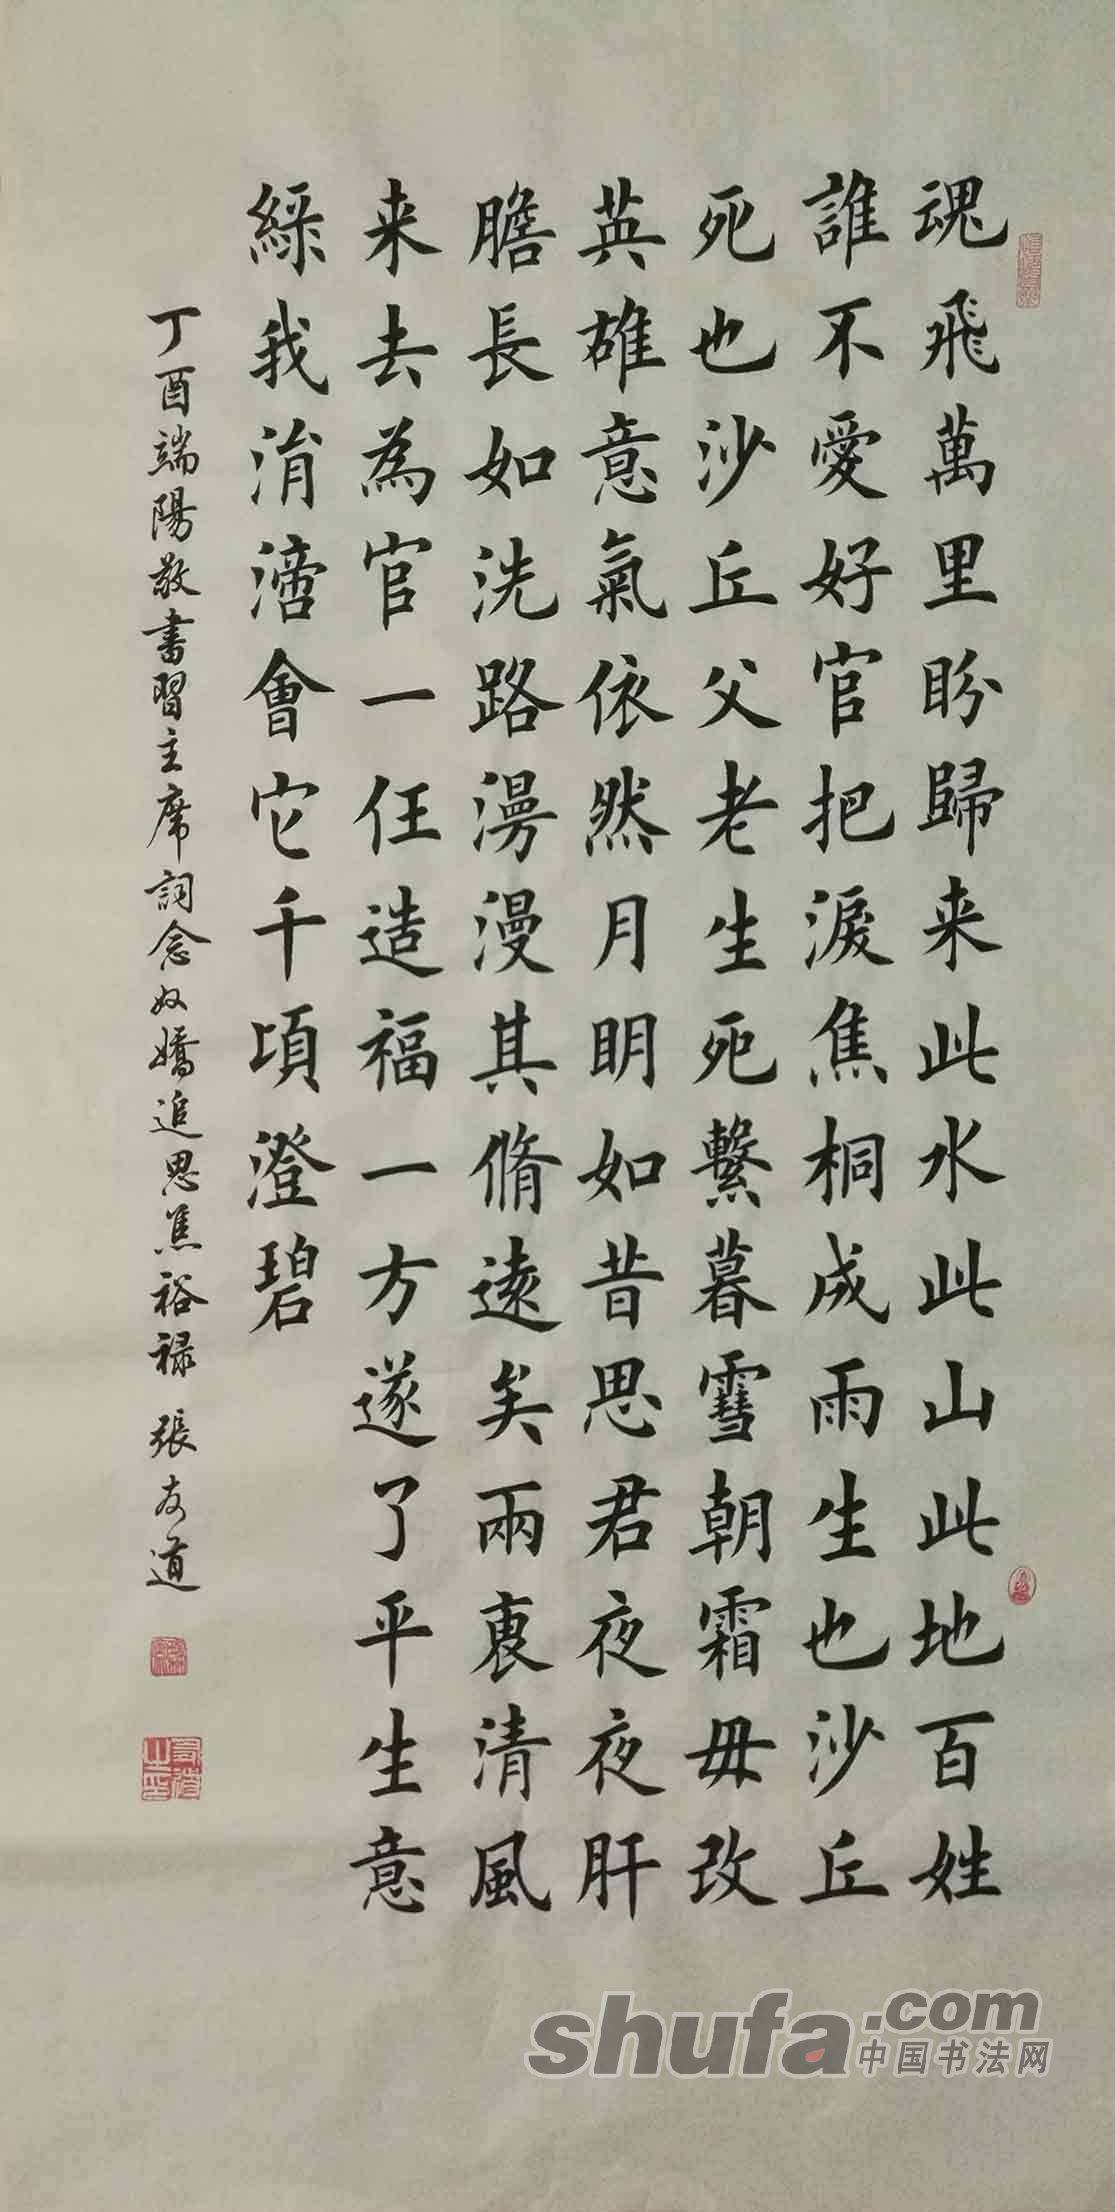 魂飛萬里盼歸来此水此山此地百姓
誰不愛好官把淚焦桐成雨生也沙丘
死也沙丘父老生死繫暮雪朝霜毋改
英雄意氣依然月明如昔思君夜夜肝
膽長如洗路漫漫其脩遠矣兩袖清風
来去為官一任造福一方遂了平生意
綠我涓滴會它千頃澄碧
丁酉端陽敬書習主席詞念奴嬌追思焦裕禄 張友道
shufa.com
中国书法网